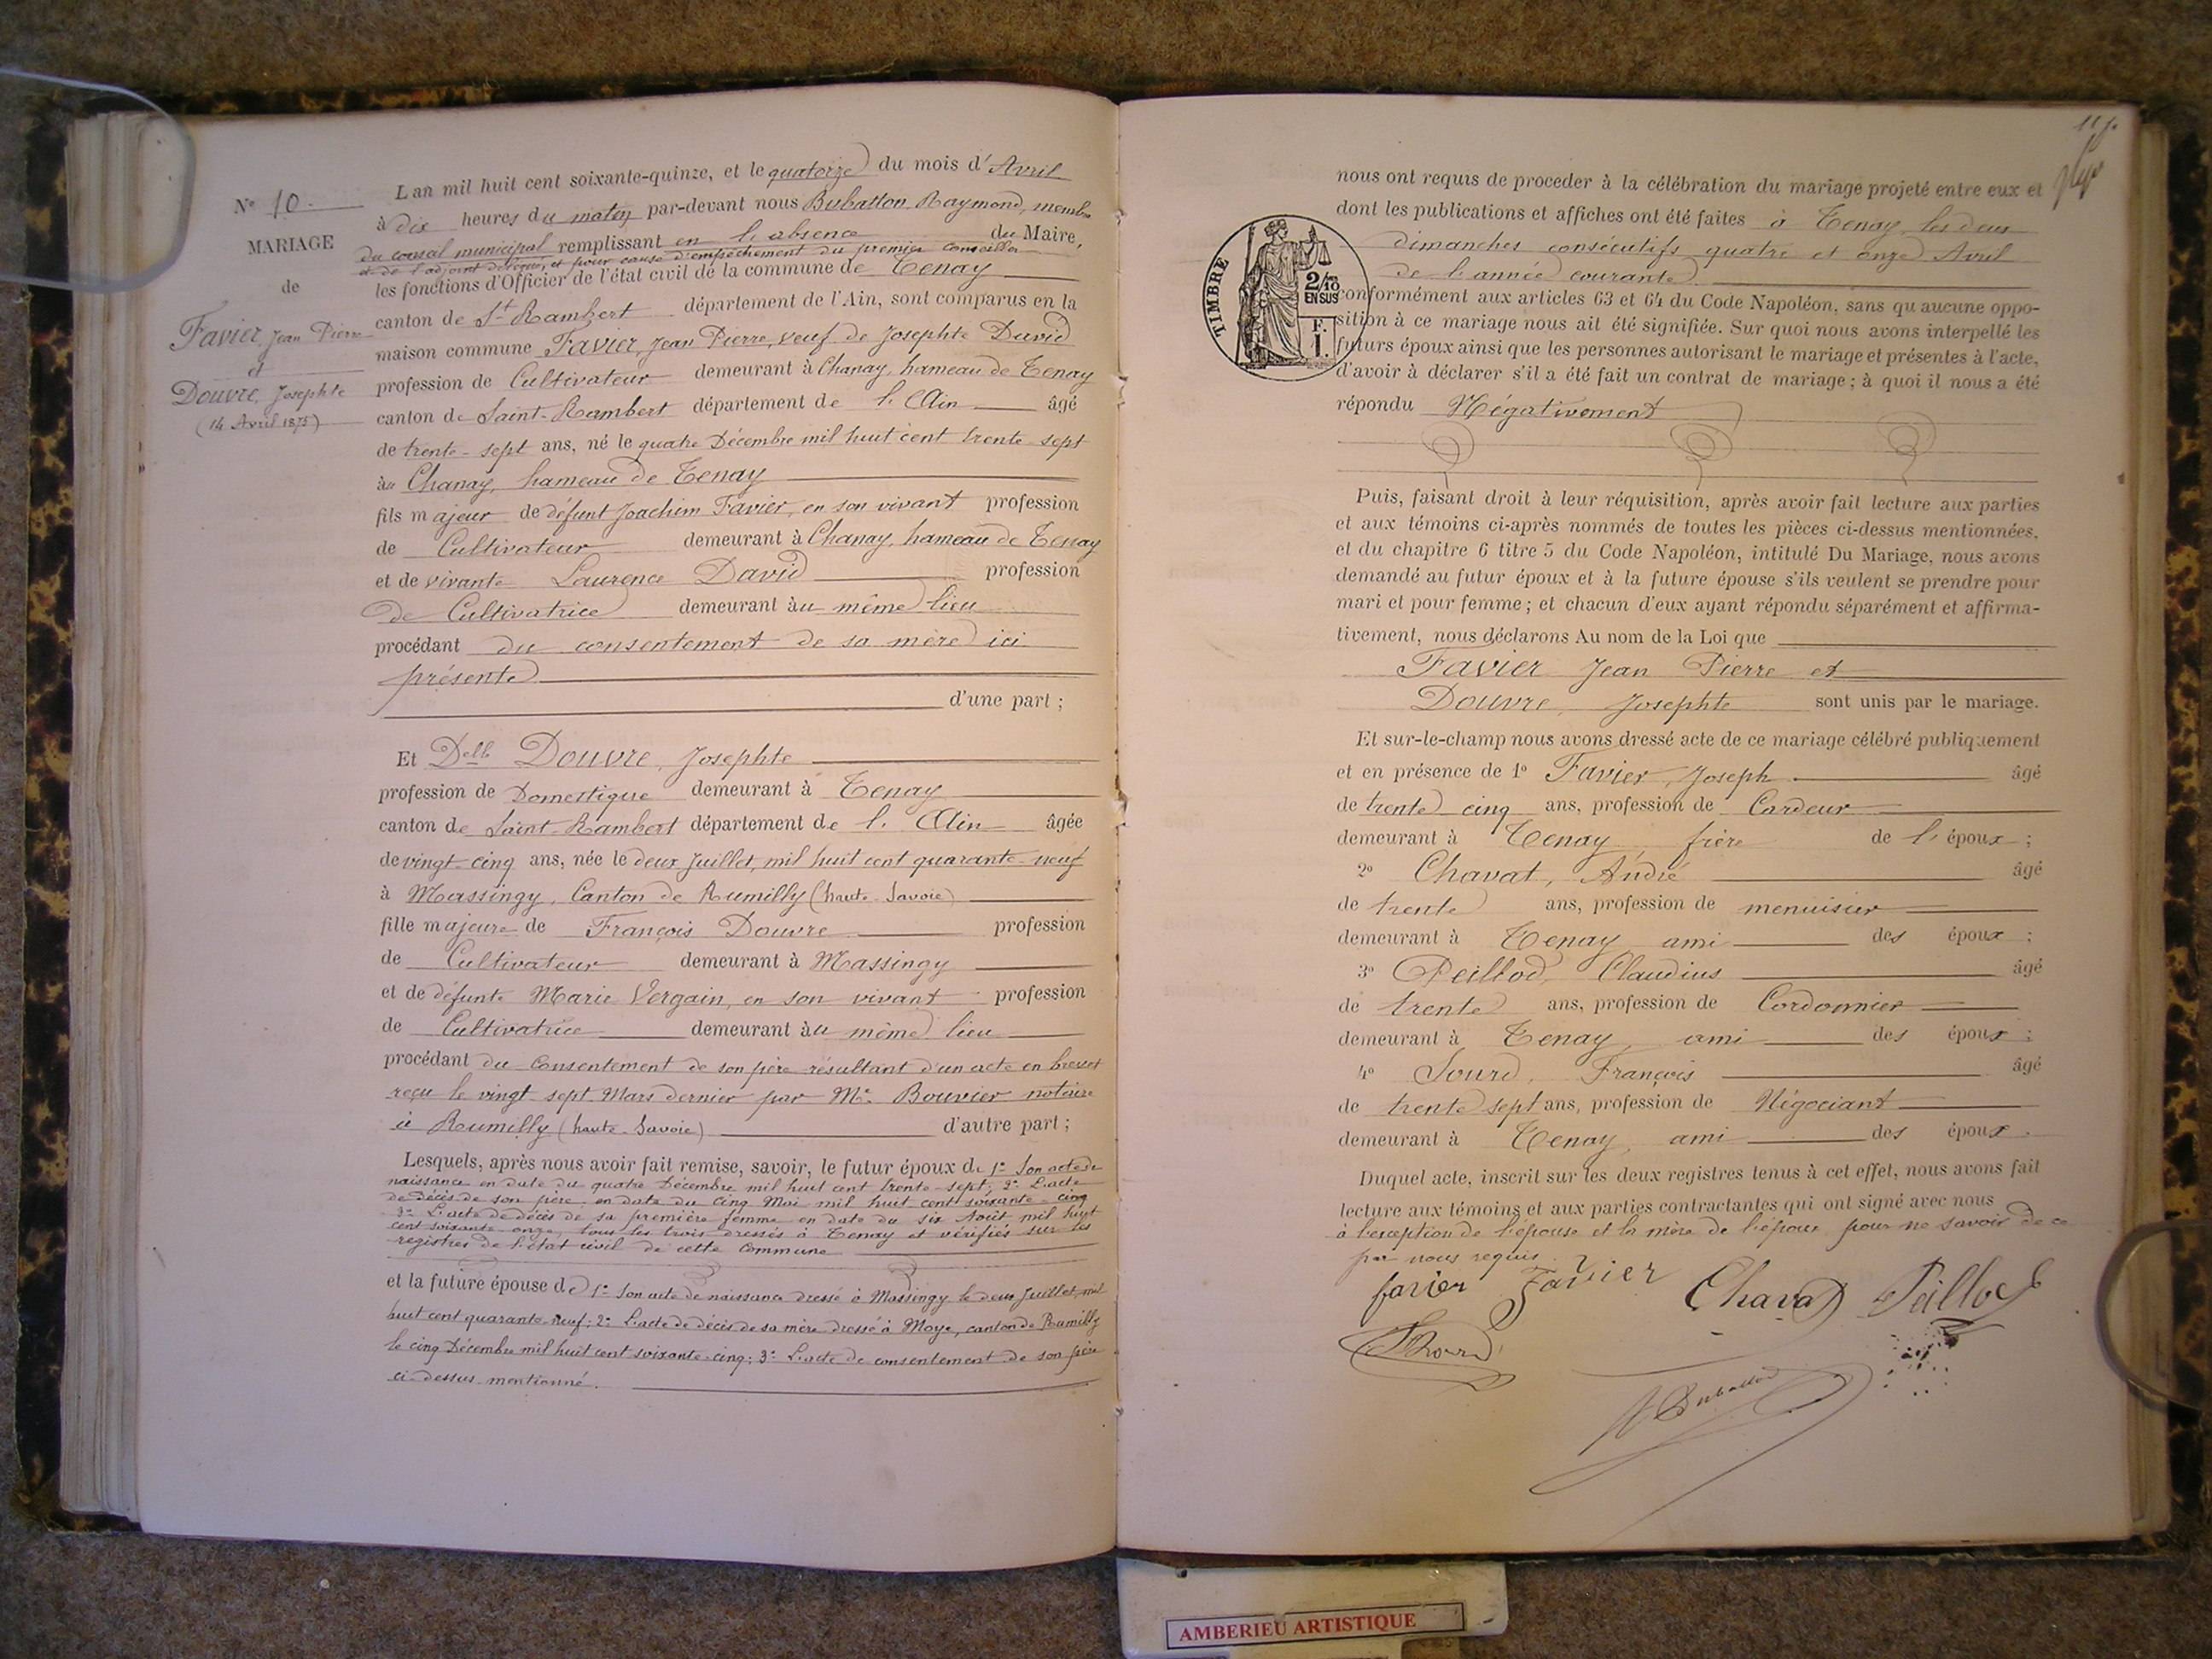 N° 10.
MARIAGE
de
Favier, Jean Pierre
et
Douvre, Josephte
(14 Avril 1875)
L'an mil huit cent soixante-quinze, et le quatorze du mois d'Avril
à dix heures du matin par-devant nous Bubatton Raymond, membre
du conseil municipal remplissant en l'absence du Maire,
et de l'adjoint délégué, et pour cause d'empêchement du premier conseiller
les fonctions d'Officier de l'état civil de la commune de Tenay
canton de St Rambert département de l'Ain, sont comparus en la
maison commune Favier, Jean Pierre, veuf de Josephte David
profession de Cultivateur demeurant à Chanay, hameau de Tenay
canton de Saint-Rambert département de l'Ain âgé
de trente-sept ans, né le quatre Décembre mil huit cent trente-sept
àu Chanay, hameau de Tenay
fils majeur de défunt Joachim Favier, en son vivant profession
de Cultivateur demeurant à Chanay, hameau de Tenay
et de vivante Laurence David profession
de Cultivatrice demeurant àu même lieu
procédant du consentement de sa mère ici
présente
d'une part ;
Et Delle Douvre, Josephte
profession de Domestique demeurant à Tenay
canton de Saint-Rambert département de l'Ain âgée
de vingt-cinq ans, née le deux Juillet, mil huit cent quarante-neuf
à Massingy, Canton de Rumilly (haute-Savoie)
fille majeure de François Douvre profession
de Cultivateur demeurant à Massingy
et de défunte Marie Vergain, en son vivant profession
de Cultivatrice demeurant àu même lieu
procédant du consentement de son père résultant d'un acte en brevet
reçu le vingt-sept Mars dernier par Me Bouvier notaire
à Rumilly (haute-Savoie) d'autre part ;
Lesquels, après nous avoir fait remise, savoir, le futur époux de 1° Son acte de
naissance en date du quatre Décembre mil huit cent trente-sept; 2° L'acte
de décès de son père en date du cinq Mai mil huit cent soixante-cinq
3° L'acte de décès de sa première femme en date du six Août mil huit
cent soixante-onze, tous les trois dressés à Tenay et vérifiés sur les
registres de l'état civil de cette commune
et la future épouse de 1° Son acte de naissance dressé à Massingy le deux Juillet, mil
huit cent quarante-neuf; 2° L'acte de décès de sa mère dressé à Moye, canton de Rumilly
le cinq Décembre mil huit cent soixante-cinq; 3° L'acte de consentement de son père
ci-dessus mentionné.
nous ont requis de procéder à la célébration du mariage projeté entre eux et
dont les publications et affiches ont été faites à Tenay les deux
dimanches consécutifs quatre et onze Avril
de l'année courante
TIMBRE
2/10
EN SUS
F.
1.
conformément aux articles 63 et 64 du Code Napoléon, sans qu'aucune oppo-
sition à ce mariage nous ait été signifiée. Sur quoi nous avons interpellé les
futurs époux ainsi que les personnes autorisant le mariage et présentes à l'acte,
d'avoir à déclarer s'il a été fait un contrat de mariage ; à quoi il nous a été
répondu Négativement
Puis, faisant droit à leur réquisition, après avoir fait lecture aux parties
et aux témoins ci-après nommés de toutes les pièces ci-dessus mentionnées,
et du chapitre 6 titre 5 du Code Napoléon, intitulé Du Mariage, nous avons
demandé au futur époux et à la future épouse s'ils veulent se prendre pour
mari et pour femme ; et chacun d'eux ayant répondu séparément et affirma-
tivement, nous déclarons Au nom de la Loi que
Favier Jean Pierre et
Douvre, Josephte sont unis par le mariage.
Et sur-le-champ nous avons dressé acte de ce mariage célébré publiquement
et en présence de 1° Favier, Joseph âgé
de trente cinq ans, profession de Cardeur
demeurant à Tenay, frère de l'époux ;
2° Chavat, André âgé
de trente ans, profession de menuisier
demeurant à Tenay ami des époux ;
3° Peillod Claudius âgé
de trente ans, profession de Cordonnier
demeurant à Tenay ami des époux ;
4° Sourd, François âgé
de trente sept ans, profession de Négociant
demeurant à Tenay, ami des époux.
Duquel acte, inscrit sur les deux registres tenus à cet effet, nous avons fait
lecture aux témoins et aux parties contractantes qui ont signé avec nous
à l'exception de l'épouse et la mère de l'époux pour ne savoir de ce
par nous requis.
favier Favier Chavat Peillod
Sourd
R Bubatton
AMBERIEU ARTISTIQUE